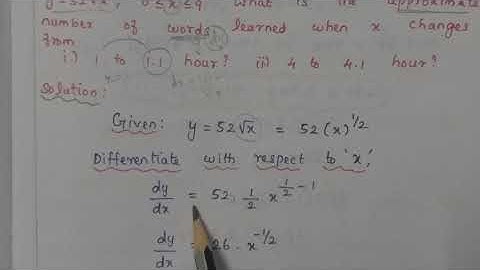 y=52√x, 0≤x≤9 What is the approximate
number of words learned when x changes
from
i) 1 to 1.1 hour? ii) 4 to 4.1 hour?
Solution:
Given: y = 52√x = 52(x)^1/2
Differentiate with respect to 'x',
dy/dx = 52 . 1/2 x^(1/2 - 1)
dy/dx = 26 . x^-1/2